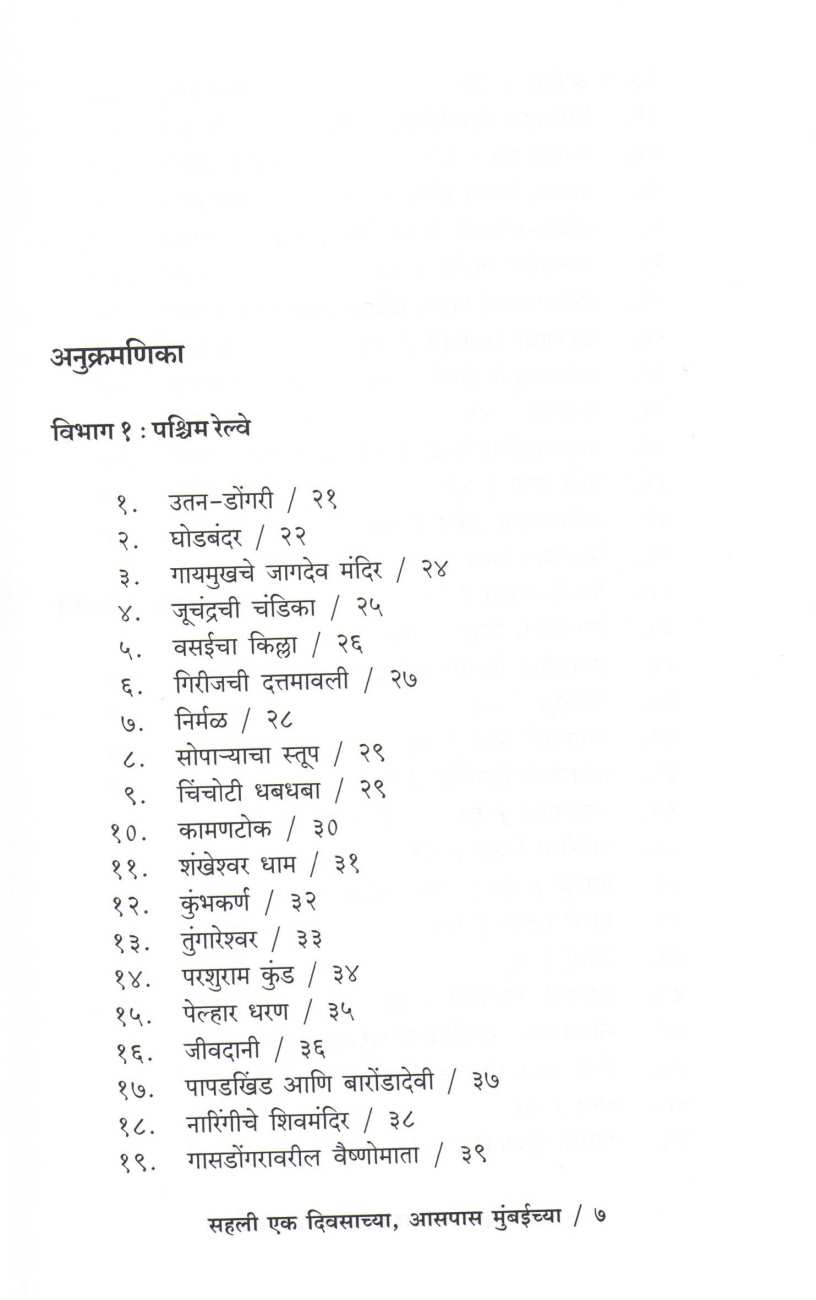 अनुक्रमणिका
विभाग १ : पश्चिम रेल्वे
१. उतन-डोंगरी / २१
२. घोडबंदर / २२
३. गायमुखचे जागदेव मंदिर / २४
४. जूचंद्रची चंडिका / २५
५. वसईचा किल्ला / २६
६. गिरीजची दत्तमावली / २७
७. निर्मळ / २८
८. सोपाऱ्याचा स्तूप / २९
९. चिंचोटी धबधबा / २९
१०. कामणटोक / ३०
११. शंखेश्वर धाम / ३१
१२. कुंभकर्ण / ३२
१३. तुंगारेश्वर / ३३
१४. परशुराम कुंड / ३४
१५. पेल्हार धरण / ३५
१६. जीवदानी / ३६
१७. पापडखिंड आणि बारोंडादेवी / ३७
१८. नारिंगीचे शिवमंदिर / ३८
१९. गासडोंगरावरील वैष्णोमाता / ३९
सहली एक दिवसाच्या, आसपास मुंबईच्या / ७